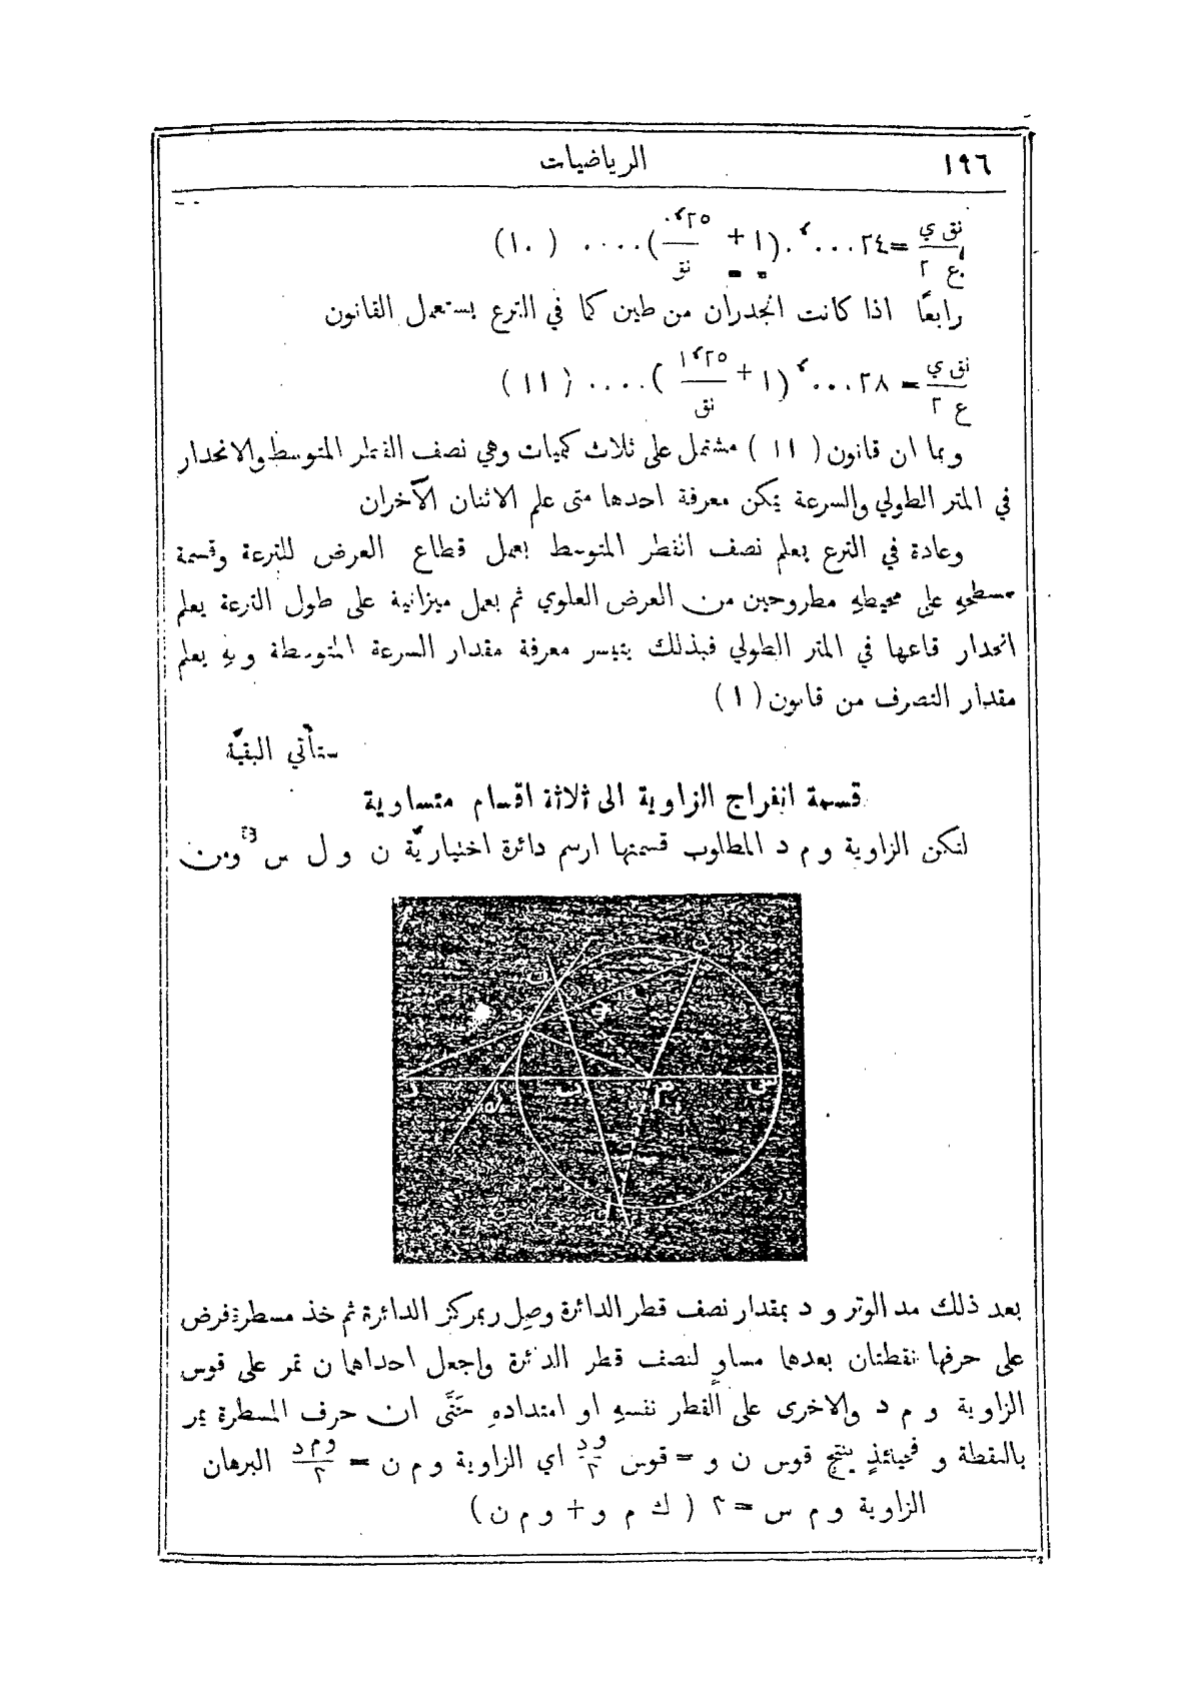 ١٩٦ الرياضيات
نق ي / ع ٢ = ٢٤...،.(١ + ٢٥،. / نق).... (١٠)
رابعًا اذا كانت الجدران من طين كما في الترع يستعمل القانون
نق ي / ع ٢ = ٢٨...،(١ + ٢٥،١ / نق).... (١١)
وبما ان قانون (١١) مشتمل على ثلاث كميات وهي نصف القطر المتوسط والانحدار
في المتر الطولي والسرعة يمكن معرفة احدها متى علم الاثنان الآخران
وعادة في الترع يعلم نصف القطر المتوسط بعمل قطاع العرض للترعة وقسمة
مسطحهِ على محيطهِ مطروحين من العرض العلوي ثم بعمل ميزانية على طول الترعة يعلم
انحدار قاعها في المتر الطولي فبذلك يتيسر معرفة مقدار السرعة المتوسطة وبهِ يعلم
مقدار التصرف من قانون (١)
ستأتي البقيَّة
قسمة انفراج الزاوية الى ثلاثة اقسام متساوية
لتكن الزاوية و م د المطلوب قسمتها ارسم دائرة اختياريَّة ن و ل س ومن
بعد ذلك مد الوتر و د بمقدار نصف قطر الدائرة وصِل ر بمركز الدائرة ثم خذ مسطرة فرض
على حرفها نقطتان بعدها مساوٍ لنصف قطر الدائرة واجعل احداهما ن تمر على قوس
الزاوية و م د والاخرى على القطر نفسهِ او امتدادهِ حتَّى ان حرف المسطرة يمر
بالنقطة و فحينئذٍ ينتج قوس ن و = قوس و د / ٢ اي الزاوية و م ن = و م د / ٢ البرهان
الزاوية و م س = ٢ (ك م و + و م ن)